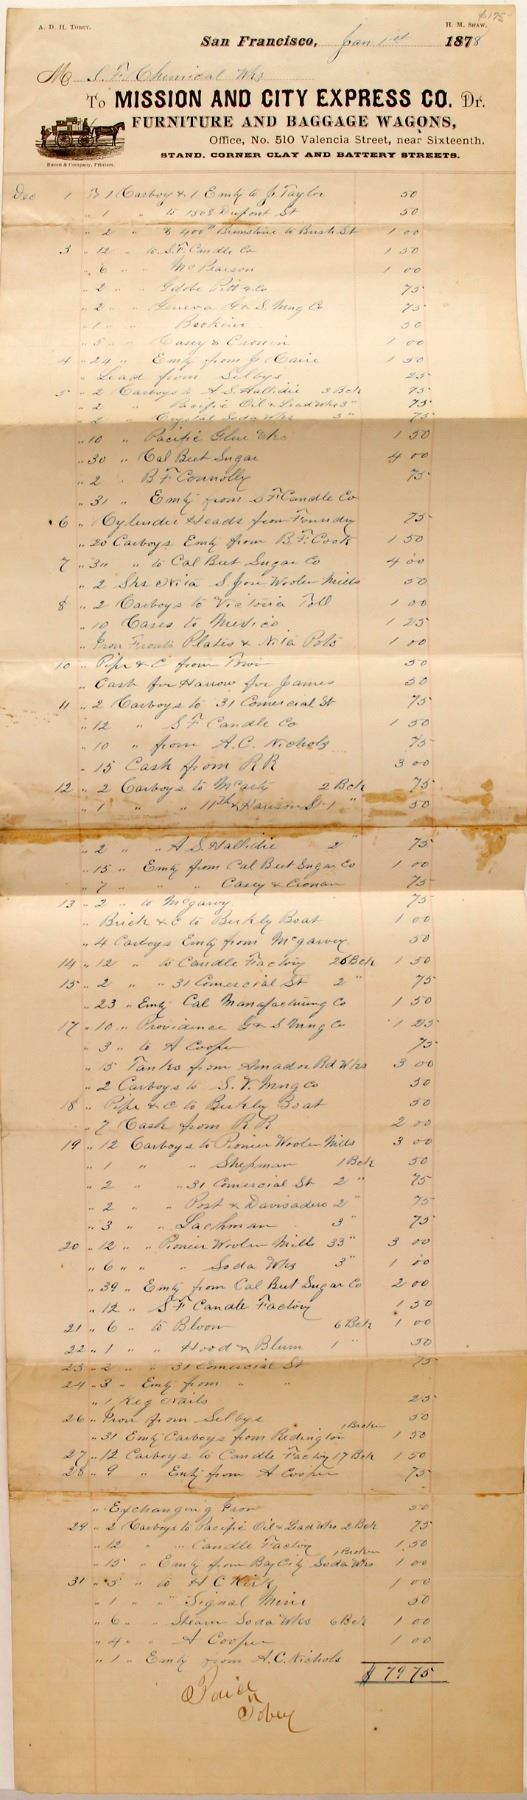 $175
A. D. H. TOBEY. H. M. SHAW.
San Francisco, Jan 1st 1878
M S. F. Chemical Wks
To MISSION AND CITY EXPRESS CO. Dr.
FURNITURE AND BAGGAGE WAGONS,
Office, No. 510 Valencia Street, near Sixteenth.
STAND, CORNER CLAY AND BATTERY STREETS.
Bacon & Company, Printers.
Dec 1 " 1 Carboy & 1 Emty to J. Taylor 50
" 1 " to 1508 Dupont St 50
" 2 " & 400 # Brimstone to Bush St 1 00
3 " 12 " to S.F. Candle Co 1 50
" 6 " Mc Pearson 1 00
" 2 " Globe Pitt & Co 75
" 2 " Geneva G & S Mng Co 75
" 1 " 50
" 3 " Casey & Cronin 1 00
4 " 24 " Emty from J. Haire 1 50
" Lead from Selbys 25
5 " 2 Carboys to A S. Hallidie 3 Bck 75
" 2 " Pacific Oil & Lead Wks 3" 75
" 2 " Crystal Soda Wks 3" 75
" 10 " Pacific Glue Wks 1 50
" 30 " Cal Beet Sugar 4 00
" 2 " B F Connolly 75
" 31 " Emty from S F Candle Co
6 " Cylinder Heads from Foundry 75
" 20 Carboys Emty from B. F. Cook 1 50
7 " 30 " to Cal Beet Sugar Co 4 00
" 2 Sks Nita S Jose Woolen Mills 50
8 " 2 Carboys to Victoria Toll 1 00
" 10 Cases to Mexico 1 25
" Iron Fronts Plates & Nita Pots 1 00
10 " Pipe & C from 50
" Cash for Harrow for James 50
11 " 2 Carboys to 31 Comercial St 75
" 12 " S F Candle Co 1 50
" 10 " from A. C. Nichols 75
" 15 Cask from R R 3 00
12 " 2 Carboys to McCarty 2 Bck 75
" 1 " " 11th & Harison St 1 " 50
" 2 " A S Hallidie 2 " 75
" 15 " Emty from Cal Beet Sugar Co 1 00
" 7 " " Casey & Cronan 75
13 " 2 " to McGarvy 75
" Brick & C to Berkly Boat 1 00
" 4 Carboys Emty from McGarvey 50
14 " 12 " to Candle Factory 26 Bck 1 50
15 " 2 " " 31 Comercial St 2 " 75
" 23 " Emty Cal Manufacturing Co 1 50
17 " 10 " Providence G & S Mng Co 1 25
" 3 " to A Cooper 75
" 15 Tanks from Amador Rd Wks 3 00
" 2 Carboys to S. V. Mng Co 50
18 " Pipe & C to Berkly Boat 50
" 7 Cask from R R 2 00
19 " 12 Carboys to Pionier Woolen Mills 3 00
" 1 " " Shepman 1 Bck 50
" 2 " " 31 Comercial St 2 " 75
" 2 " Post & Davisadero 2 " 75
" 3 " Lachman 3 " 75
20 " 12 " " Pioneer Woolen Mills 33 " 3 00
" 6 " " Soda Wks 3 " 1 00
" 39 " Emty from Cal Beet Sugar Co 2 00
" 12 " S F Candle Factory 1 50
21 " 6 " to Bloom 6 Bck 1 00
22 " 1 " " Hood & Blum 1 " 50
23 " 2 " " 31 Comercial St 75
24 " 3 " Emty from " "
" 1 Keg Nails 25
26 " Iron from Selbys 50
" 31 Emty Carboys from Redington 1 Broken 1 50
27 " 12 Carboys to Candle Factory 17 Bck 1 50
28 " 9 " Emty from A Cooper 75
" Exchanging Iron 50
29 " 2 Carboys to Pacific Oil & Lead Wks 2 Bck 75
" 12 " " Candle Factory 1 50
" 15 " Emty from Bay City Soda Wks 1 Broken 1 00
31 " 5 " to H C Kirk 1 00
" 1 " " Signal Mine 50
" 6 " Steam Soda Wks 6 Bck 1 00
" 4 " A Cooper 1 00
" 1 " Emty from A. C. Nichols
$ 79 75
Paid
Tobey